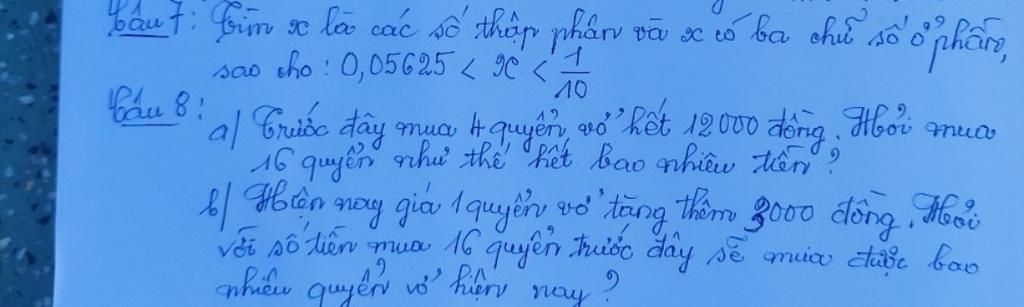 Câu 7: Tìm x là các số thập phân và x có ba chữ số ở phần,
sao cho: 0,05625 < x < 1/10
Câu 8:
a/ Trước đây mua 4 quyển vở hết 12000 đồng. Hỏi mua
16 quyển như thế hết bao nhiêu tiền?
b/ Hiện nay giá 1 quyển vở tăng thêm 3000 đồng. Hỏi
với số tiền mua 16 quyển trước đây sẽ mua được bao
nhiêu quyển vở hiện nay?